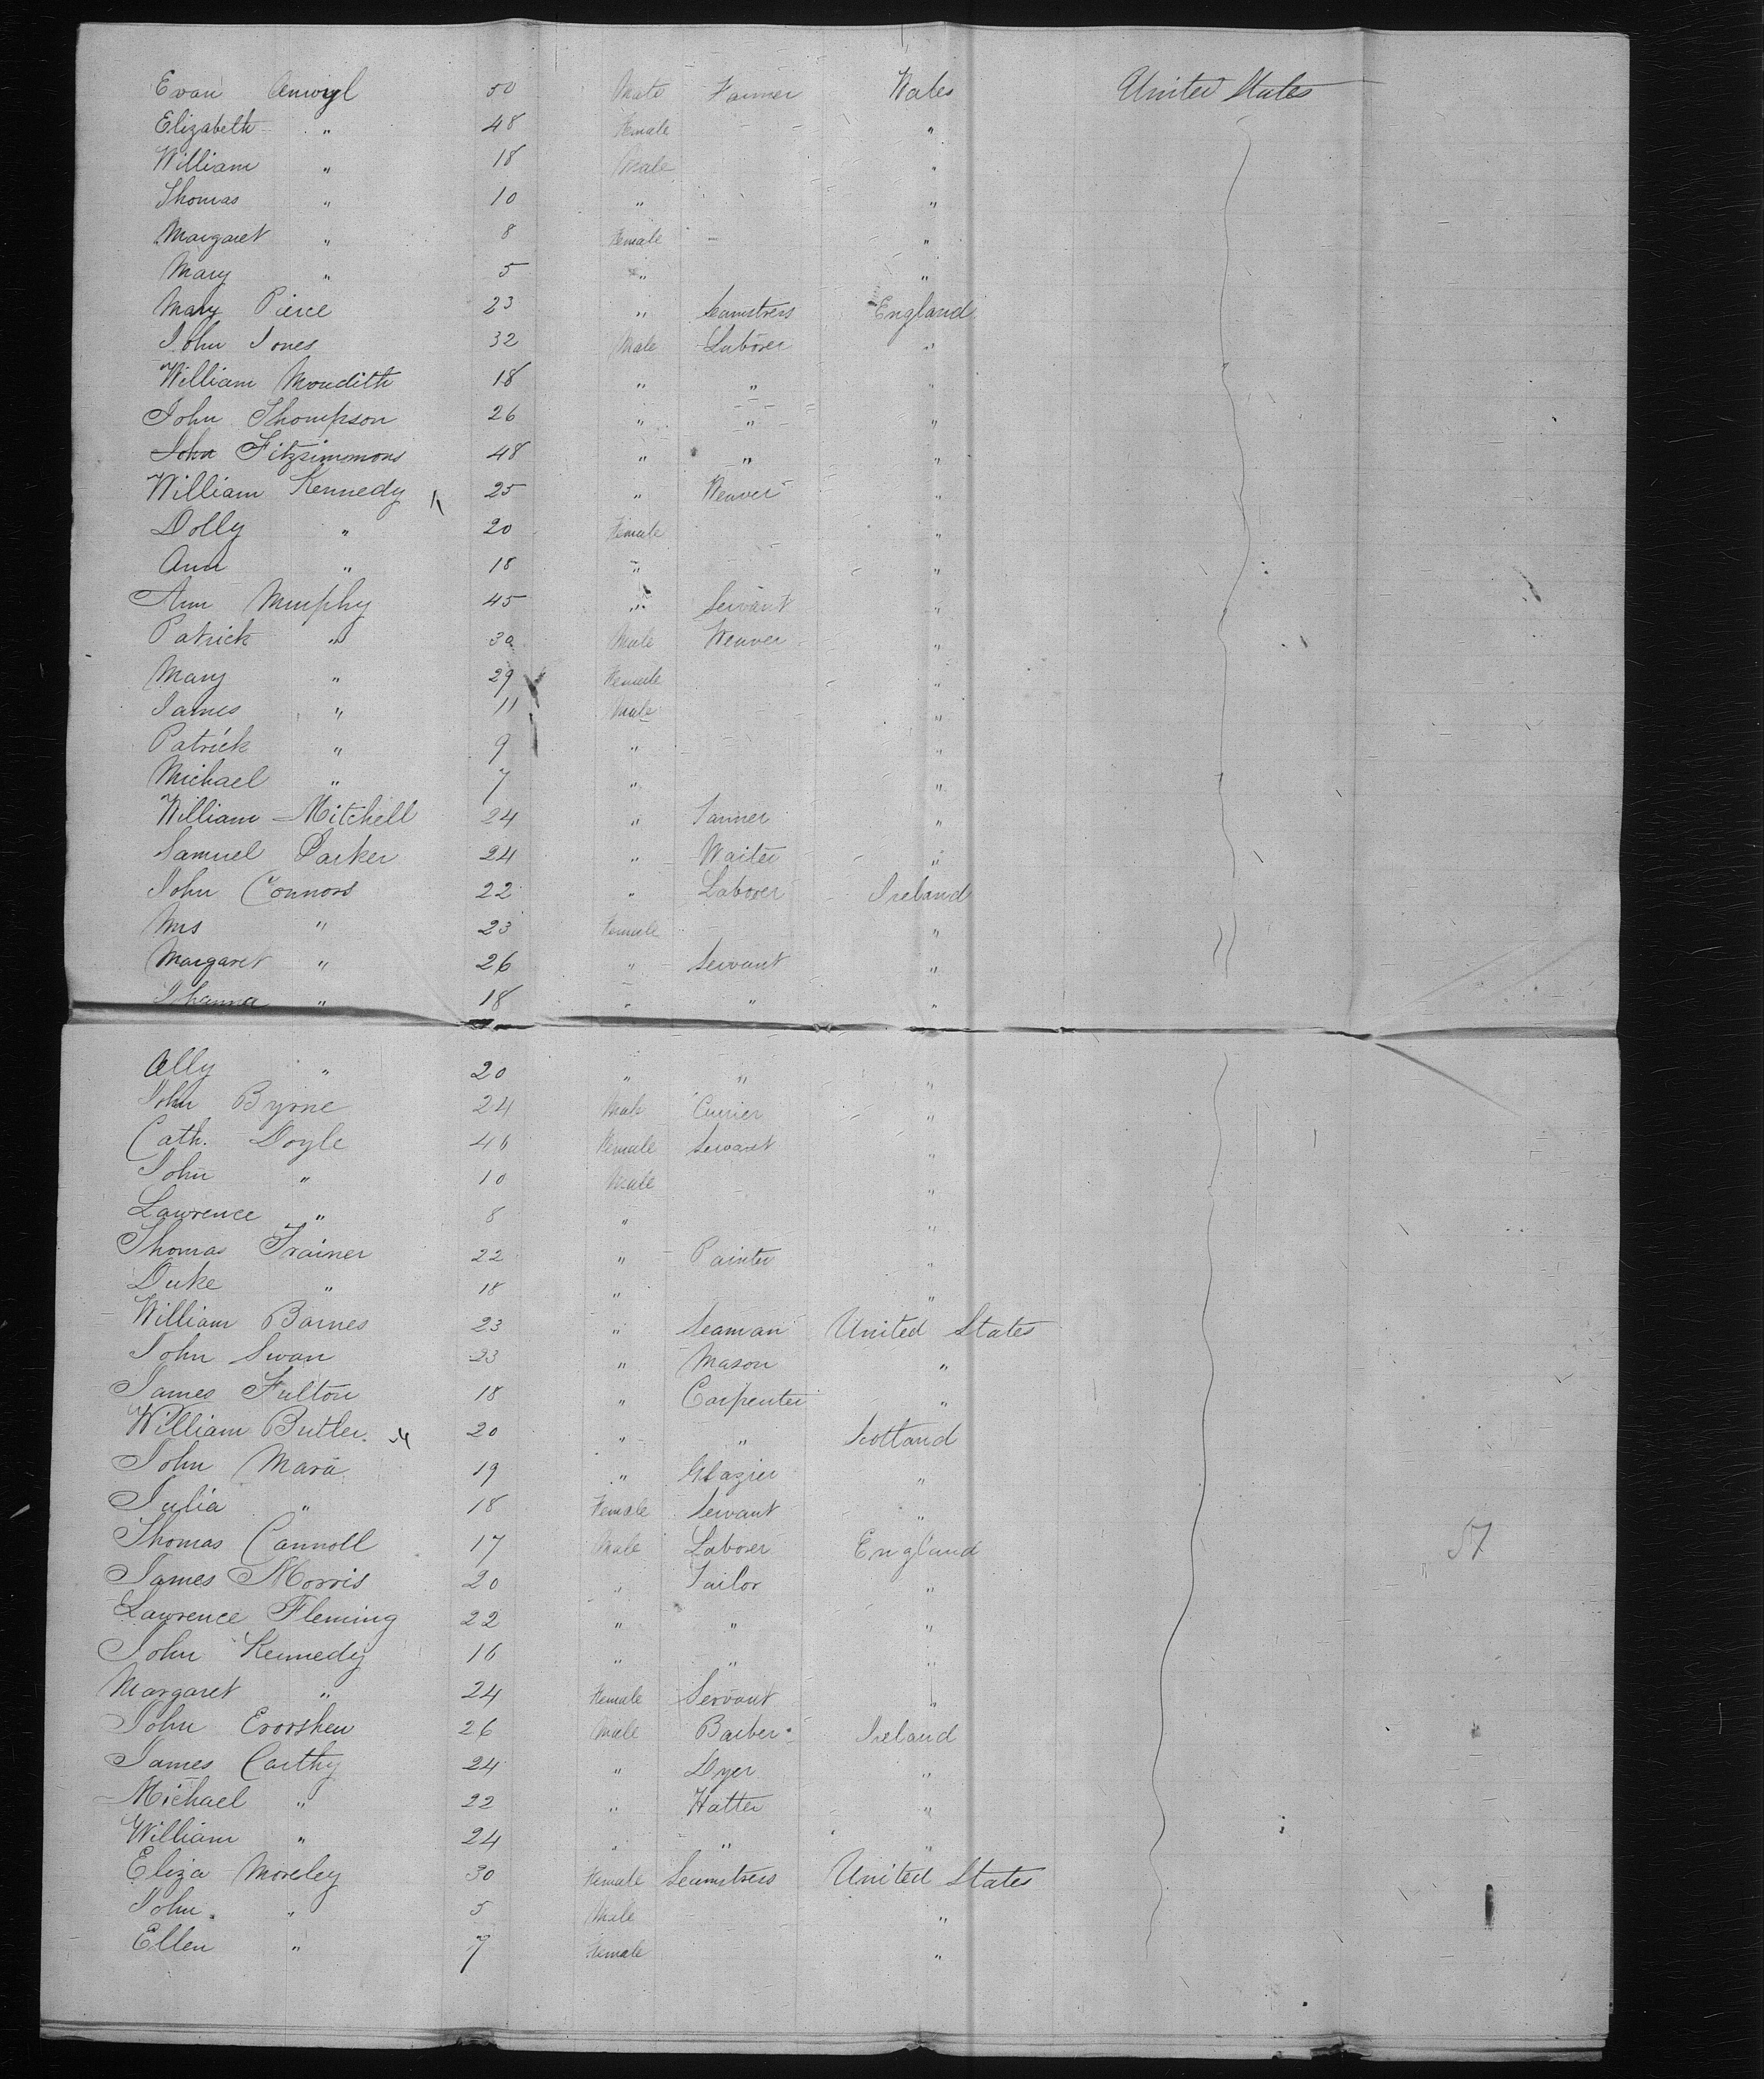 Evan Anwyl 50 Male Farmer Wales United States
Elizabeth " 48 Female - - "
William " 18 Male - "
Thomas " 10 " "
Margaret " 8 Female - - "
Mary " 5 " "
Mary Pierce 23 " Seamstress England
John Jones 32 Male Laborer "
William 18 " " "
John Thompson 26 " " "
John Fitzsimmons 48 " " "
William Kennedy 25 " Weaver "
Dolly " 20 Female "
Ann " 18 " - "
Ann Murphy 45 " Servant "
Patrick " 30 Male Weaver "
Mary " 29 Female - "
James " 11 Male "
Patrick " 9 " "
Michael " 7 " "
William Mitchell 24 " "
Samuel Parker 24 " Waiter "
John Connors 22 " Laborer Ireland
Mrs " 23 Female "
Margaret " 26 " Servant "
Johanna " 18 " " "
Ally " 20 " " "
John Byrne 24 Male Currier "
Cath. Doyle 46 Female Servant "
John " 10 Male "
Lawrence " 8 " "
Thomas Trainer 22 " Painter "
Duke " 18 " "
William Barnes 23 " Seaman United States
John Swan 23 " Mason "
James Fulton 18 " Carpenter "
William Butler 20 " " Scotland
John Mara 19 " Glazier "
Julia " 18 Female Servant "
Thomas Cannoll 17 Male Laborer England 57
James Morris 20 " Tailor "
Lawrence Fleming 22 " " "
John Kennedy 16 " " "
Margaret " 24 Female Servant "
John 26 Male Barber Ireland
James Carthy 24 " Dyer "
Michael " 22 " Hatter "
William " 24 " " "
Eliza Moreley 30 Female Seamstress United States
John " 5 Male "
Ellen " 7 Female "